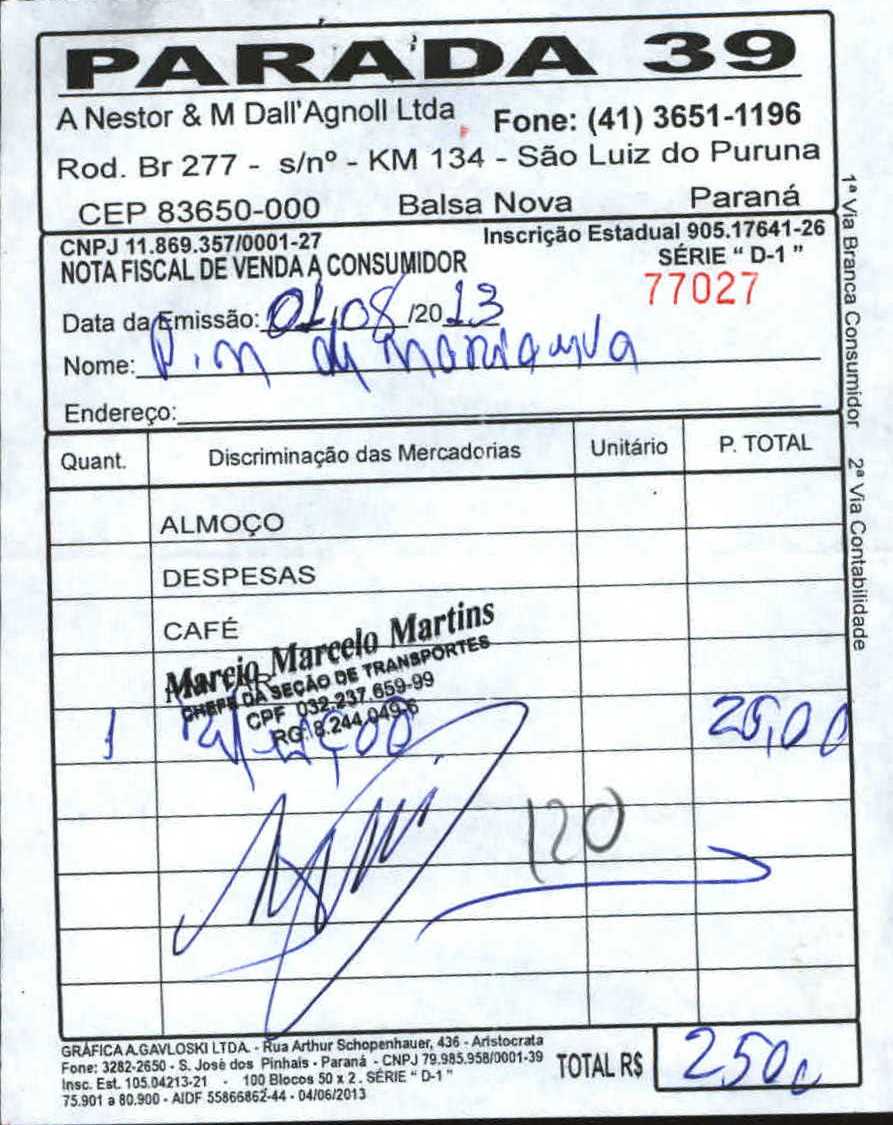 PARADA 39
A Nestor & M Dall'Agnoll Ltda Fone: (41) 3651-1196
Rod. Br 277 - s/nº - KM 134 - São Luiz do Puruna
CEP 83650-000 Balsa Nova Paraná
CNPJ 11.869.357/0001-27 Inscrição Estadual 905.17641-26
NOTA FISCAL DE VENDA A CONSUMIDOR SÉRIE “ D-1 ”
77027
Data da Emissão: 01/08/2013
Nome: P. M de
Endereço:
Quant. Discriminação das Mercadorias Unitário P. TOTAL
ALMOÇO
DESPESAS
CAFÉ
Marcio Marcelo Martins
CHEFE DA SEÇÃO DE TRANSPORTES
CPF 032.237.659-99
RG: 8.244.049-6
1 25,00
120
TOTAL R$ 25,00
GRÁFICA A. GAVLOSKI LTDA. - Rua Arthur Schopenhauer, 436 - Aristocrata
Fone: 3282-2650 - S. José dos Pinhais - Paraná - CNPJ 79.985.958/0001-39
Insc. Est. 105.04213-21 - 100 Blocos 50 x 2. SÉRIE “ D-1 ”
75.901 a 80.900 - AIDF 55866862-44 - 04/06/2013
1ª Via Branca Consumidor 2ª Via Contabilidade